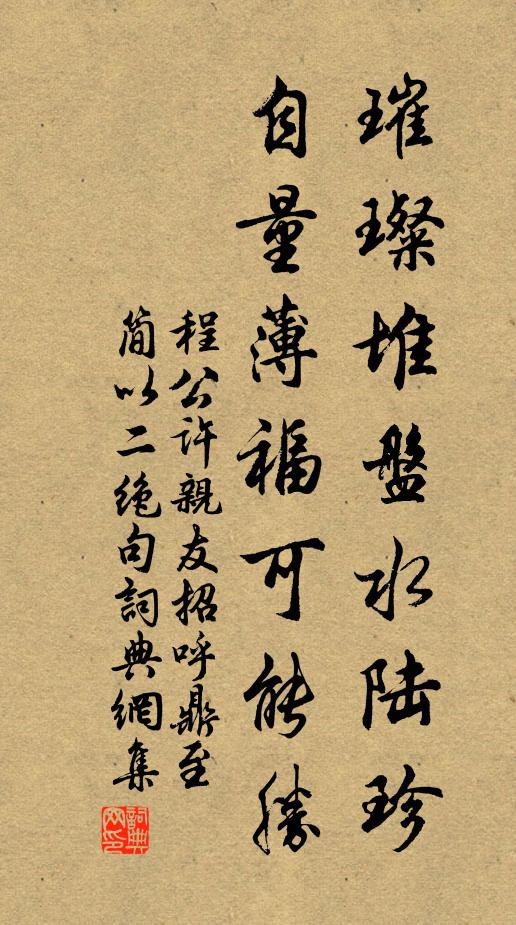 璀璨堆盤水陆珍
自量薄福可能勝
程公许親友招呼鼎至
简以二绝句詞典網集
詞典网印